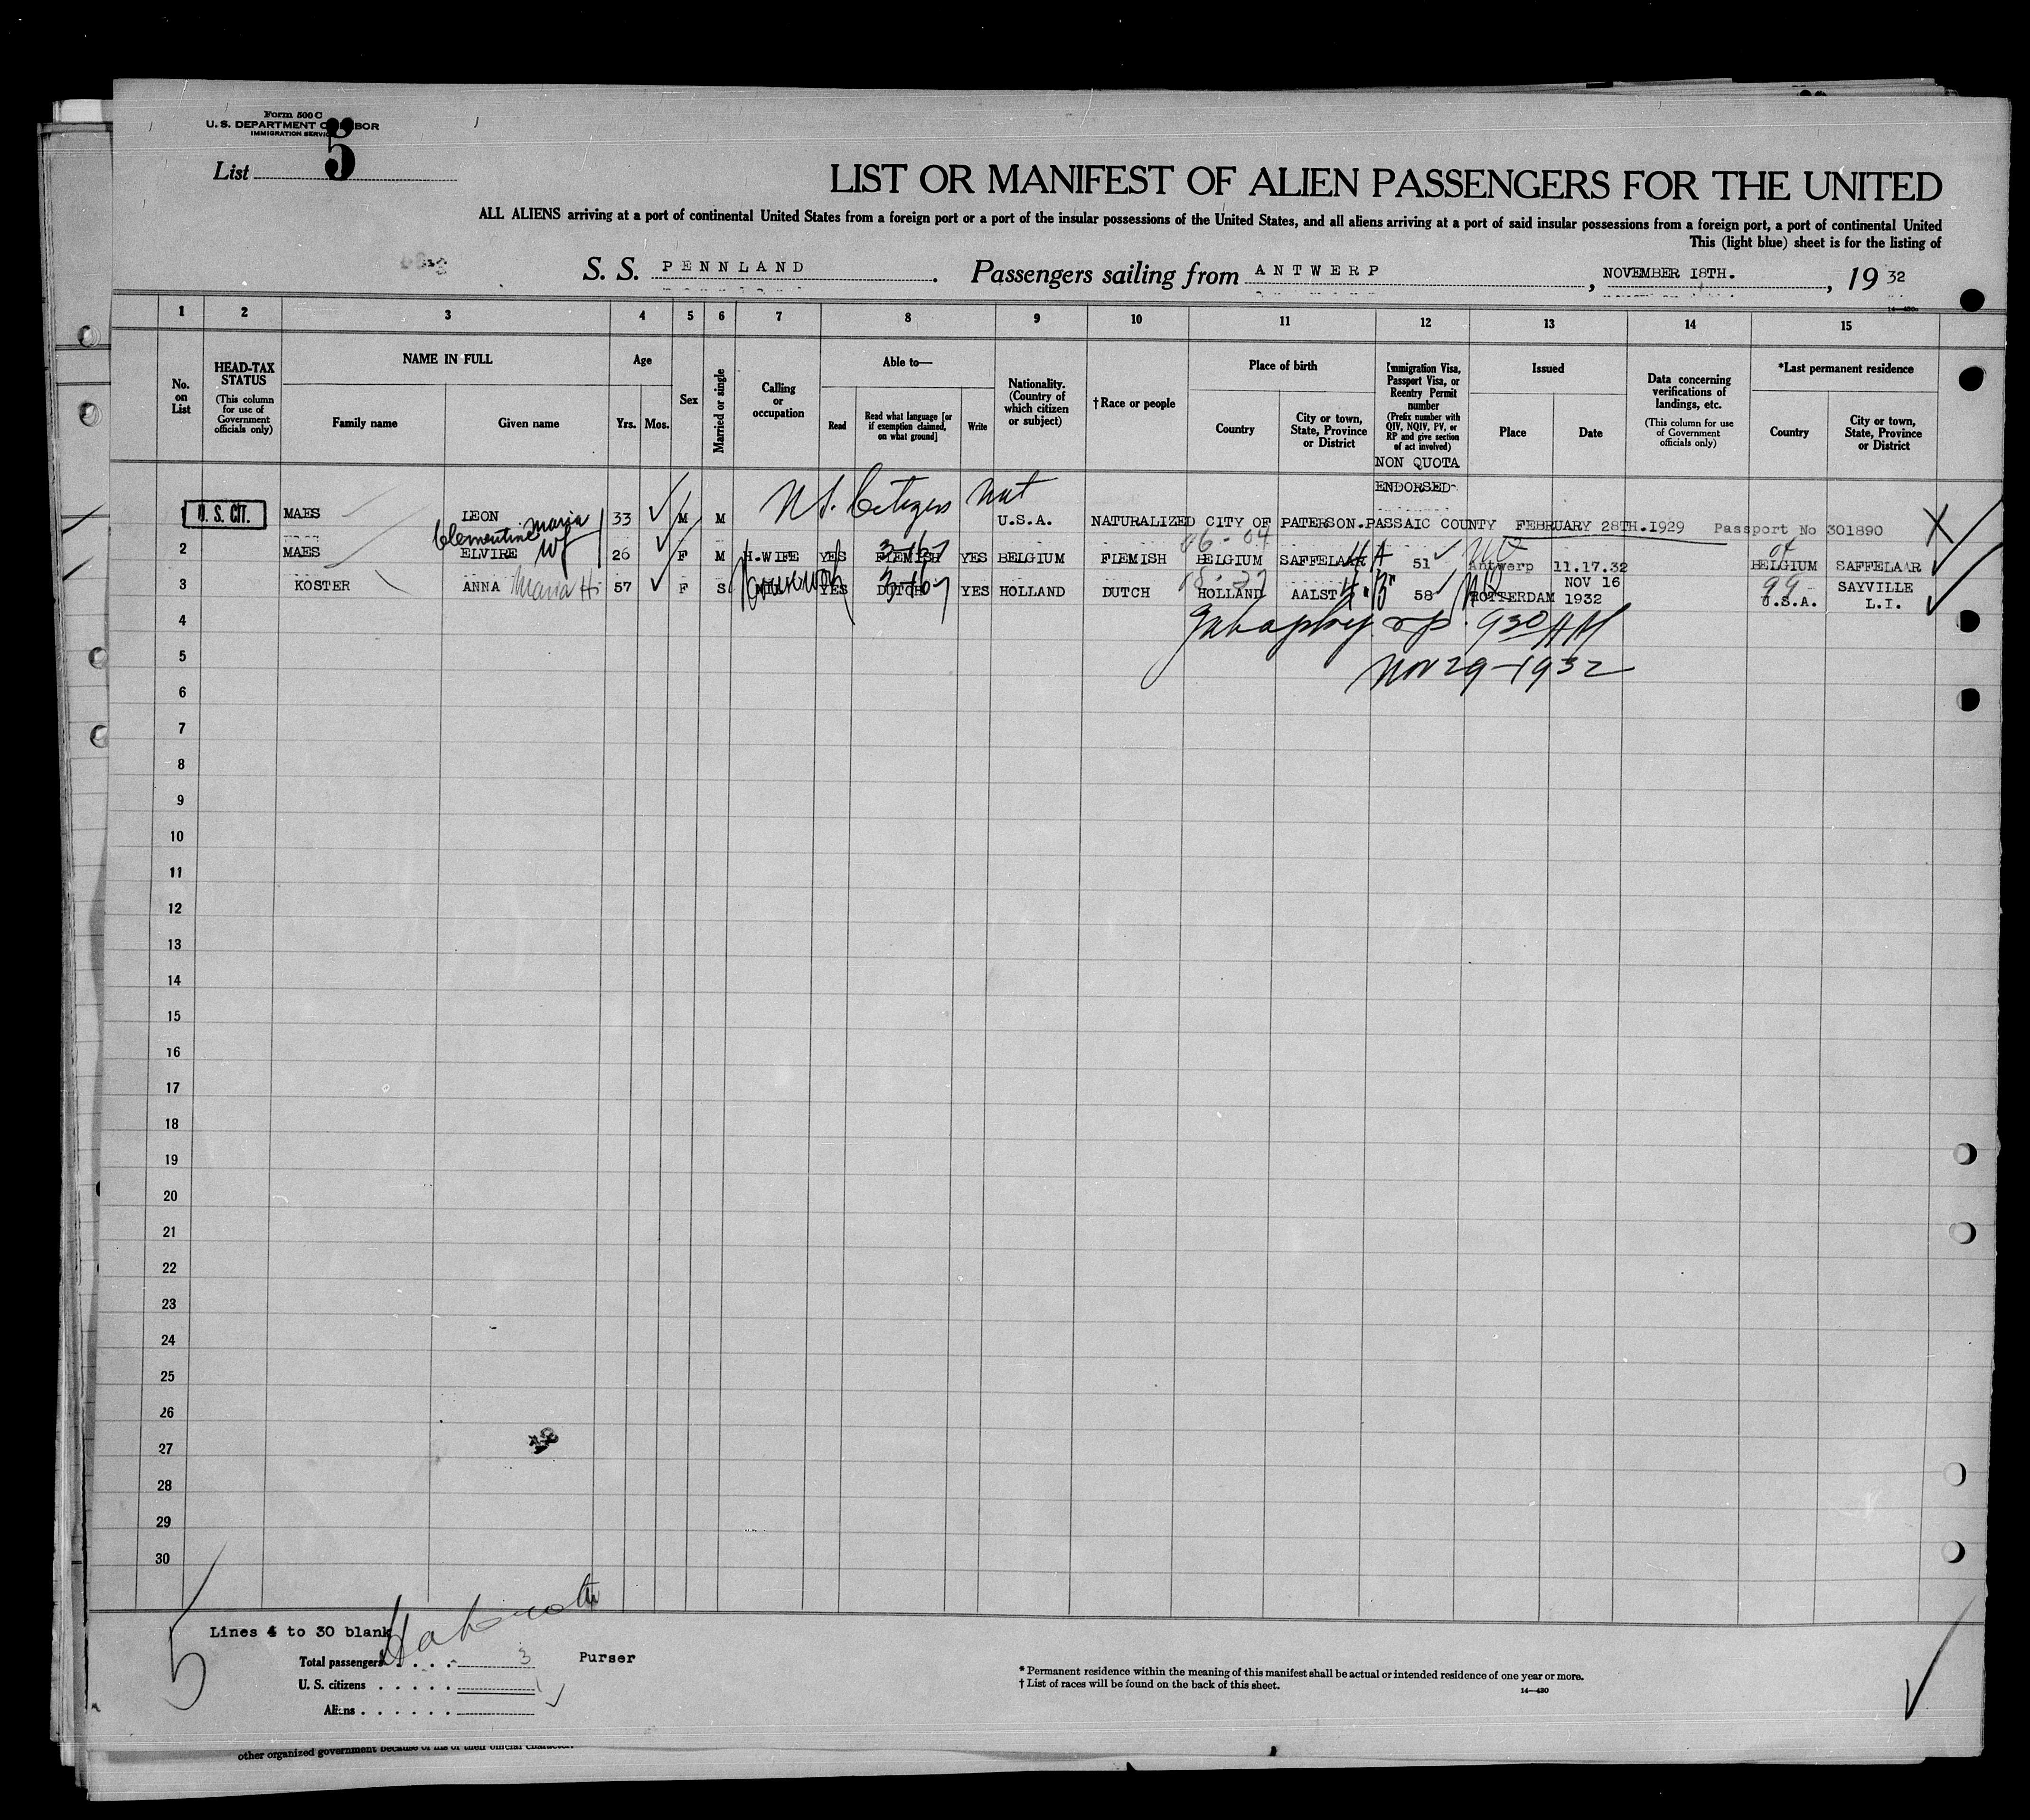 Form 500 C
U. S. DEPARTMENT OF LABOR
IMMIGRATION SERVICE
List 5
LIST OR MANIFEST OF ALIEN PASSENGERS FOR THE UNITED
ALL ALIENS arriving at a port of continental United States from a foreign port or a port of the insular possessions of the United States, and all aliens arriving at a port of said insular possessions from a foreign port, a port of continental United
This (light blue) sheet is for the listing of
S. S. PENNLAND. Passengers sailing from ANTWERP, NOVEMBER 18TH., 19 32
14—430a
1 2 3 4 5 6 7 8 9 10 11 12 13 14 15
No. on List
HEAD-TAX STATUS (This column for use of Government officials only)
NAME IN FULL
Family name
Given name
Age
Yrs. Mos.
Sex
Married or single
Calling or occupation
Able to—
Read
Read what language [or if exemption claimed, on what ground]
Write
Nationality. (Country of which citizen or subject)
†Race or people
Place of birth
Country
City or town, State, Province or District
Immigration Visa, Passport Visa, or Reentry Permit number (Prefix number with QIV, NQIV, PV, or RP and give section of act involved)
Issued
Place
Date
Data concerning verifications of landings, etc. (This column for use of Government officials only)
*Last permanent residence
Country
City or town, State, Province or District
NON QUOTA
ENDORSED
U S. Citizen Nat
1 U. S. CIT. MAES LEON 33 M M U.S.A. NATURALIZED CITY OF PATERSON.PASSAIC COUNTY FEBRUARY 28TH.1929 Passport No 301890
Clementine Maria
2 MAES ELVIRE Wf 26 F M H.WIFE YES FLEMISH YES BELGIUM FLEMISH BELGIUM SAFFELAAR 4 A 51 Antwerp 11.17.32 BELGIUM SAFFELAAR
3 KOSTER ANNA Maria H. 57 F S YES DUTCH YES HOLLAND DUTCH HOLLAND AALST 4 B 58 ROTTERDAM NOV 16 1932 U.S.A. SAYVILLE L.I.
4 930 AM
5 Nov 29-1932
6
7
8
9
10
11
12
13
14
15
16
17
18
19
20
21
22
23
24
25
26
27
28
29
30
5
Lines 4 to 30 blank
Total passengers . . . . 3 Purser
U. S. citizens . . . . . 1
Aliens . . . . . .
* Permanent residence within the meaning of this manifest shall be actual or intended residence of one year or more.
† List of races will be found on the back of this sheet.
14—430
other organized government because of his or their official character.